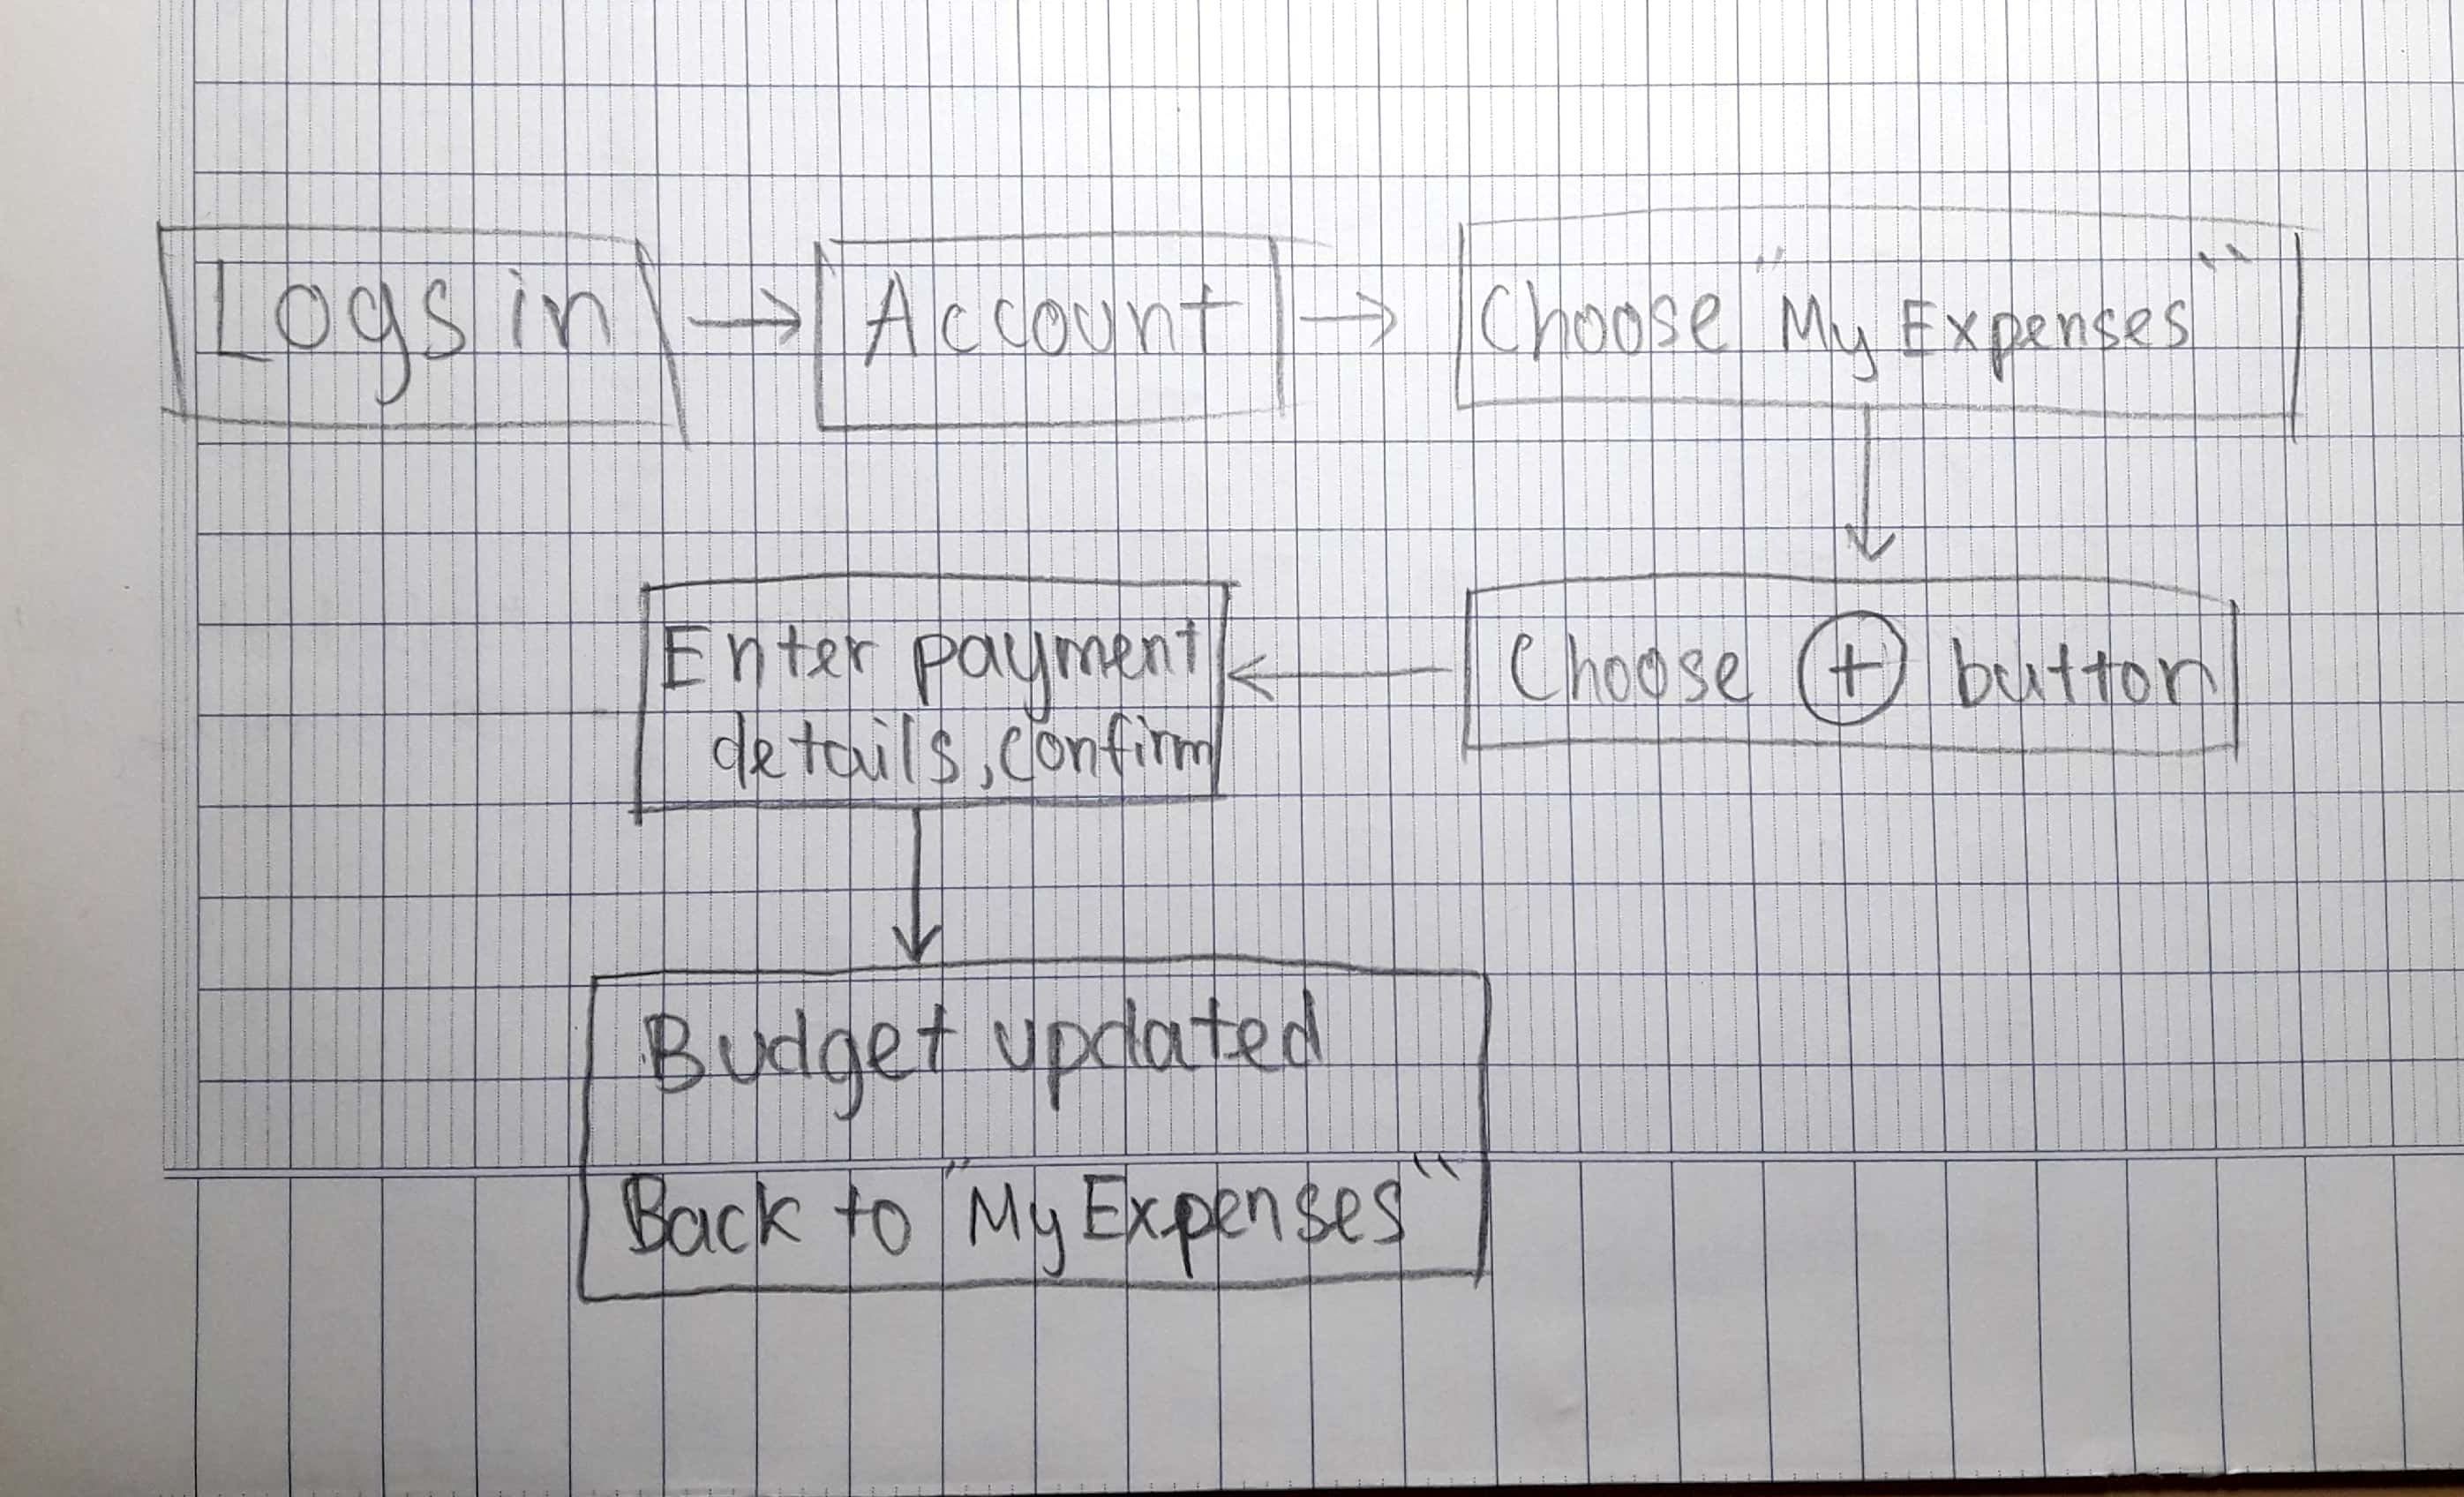 Logs in
Account
Choose "My Expenses"
Choose + button
Enter payment
details, confirm
Budget updated
Back to "My Expenses"